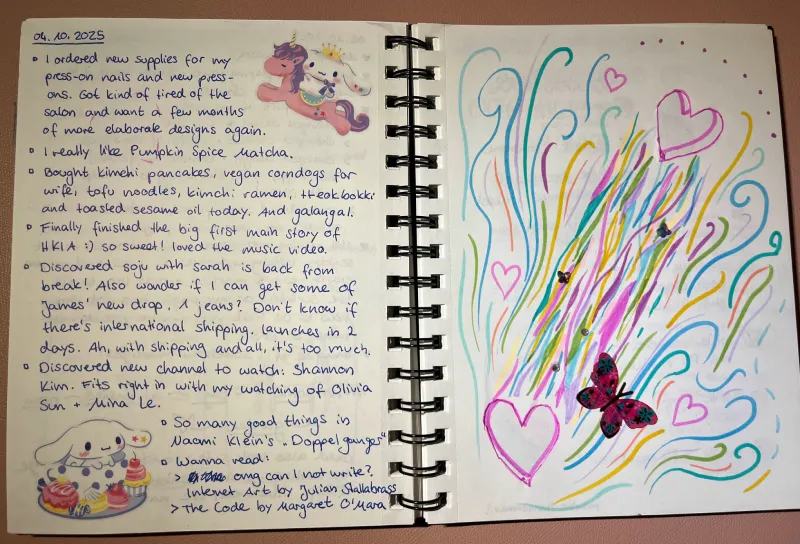 04.10.2025
I ordered new supplies for my
press-on nails and new press-
ons. Got kind of tired of the
salon and want a few months
of more elaborate designs again.
I really like Pumpkin Spice Matcha.
Bought kimchi pancakes, vegan corndogs for
wife, tofu noodles, kimchi ramen, tteokbokki
and toasted sesame oil today. And galangal.
Finally finished the big first main story of
HKIA :) so sweet! loved the music video.
Discovered soju with sarah is back from
break! Also wonder if I can get some of
James' new drop. 1 jeans? Don't know if
there's international shipping. launches in 2
days. Ah, with shipping and all, it's too much.
Discovered new channel to watch: Shannon
Kim. Fits right in with my watching of Olivia
Sun + Mina Le.
So many good things in
Naomi Klein's „Doppelganger"
Wanna read:
> omg can I not write?
Internet Art by Julian Stallabrass
> The Code by Margaret O'Mara